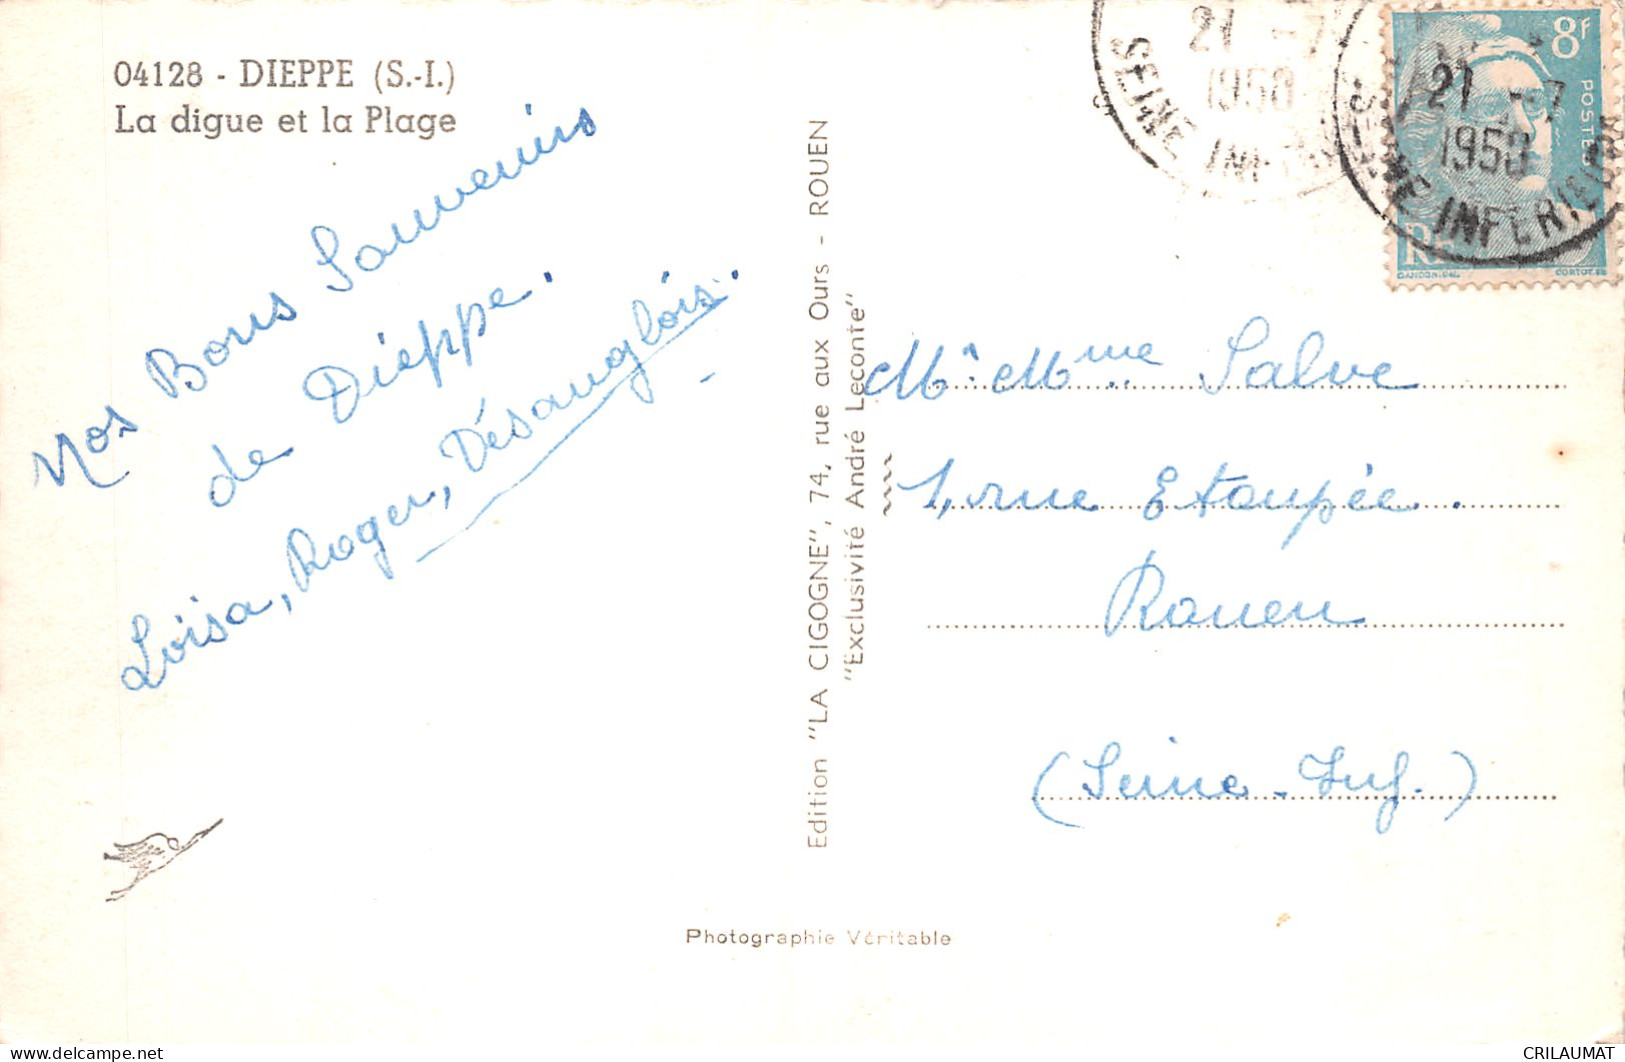 04128 - DIEPPE (S.-I.)
La digue et la Plage
Nos Bons Souvenirs
de Dieppe.
Loïsa, Roger, Désanglois.
Edition "LA CIGOGNE", 74, rue aux Ours - ROUEN
"Exclusivité André Leconte"
21 -7
1950
SEINE INF
21 -7
1950
SEINE INFERIEURE
8f
POSTES
RF
GANDON
CORTOT
Mr. Mme Salve
1, rue Etoupée.
Rouen
(Seine-Inf.)
Photographie Véritable
CRILAUMAT